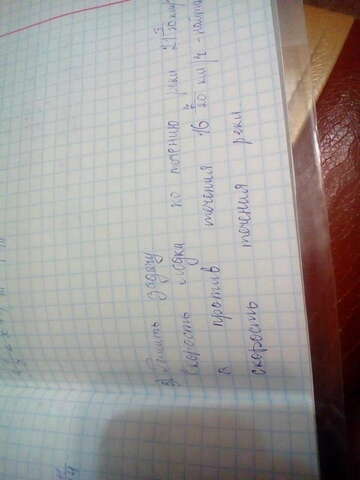 3) Решить задачу
Скорость лодки по течению реки
а против течения 16 км/ч - найти
скорость течения реки